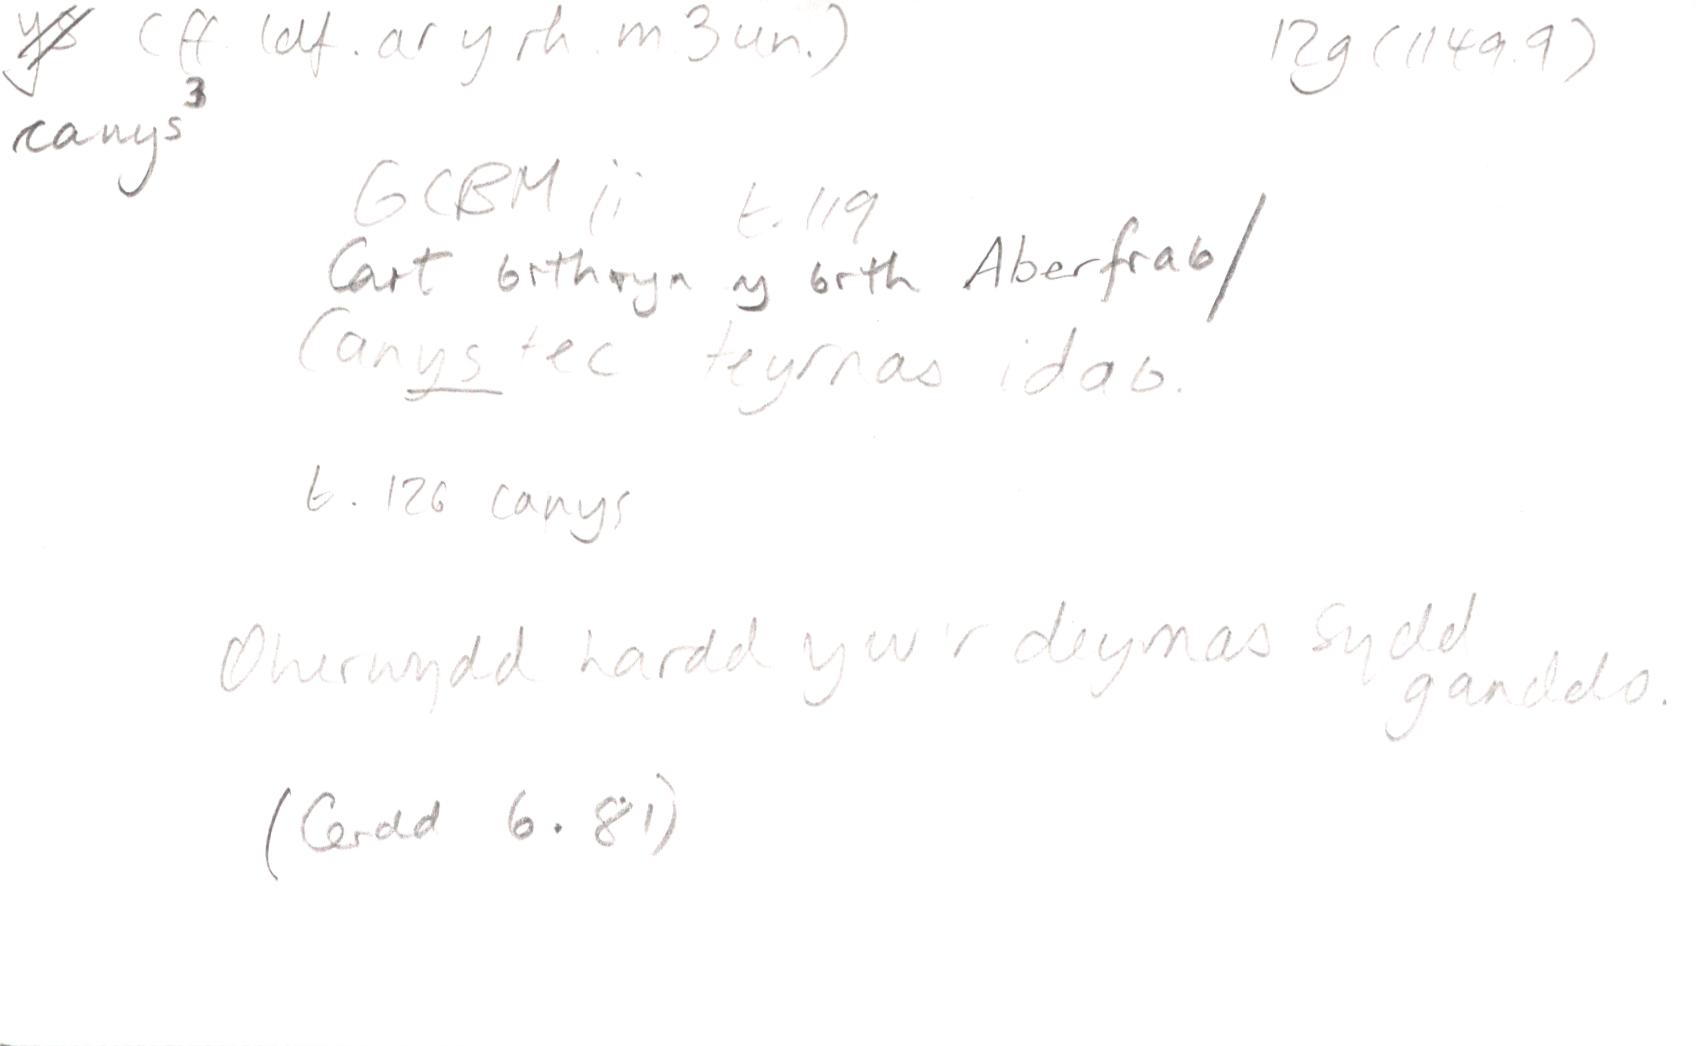 ys (ff. ldf. ar y rh. m. 3 un.) 12g (1149.9)
canys³
GCBM ii t.119
Cart ỽrthryn y ỽrth Aberfraỽ/
Canys tec teyrnas idaỽ.
t. 126 canys
Oherwydd hardd yw'r deyrnas sydd
ganddo.
(Cerdd 6. 81)